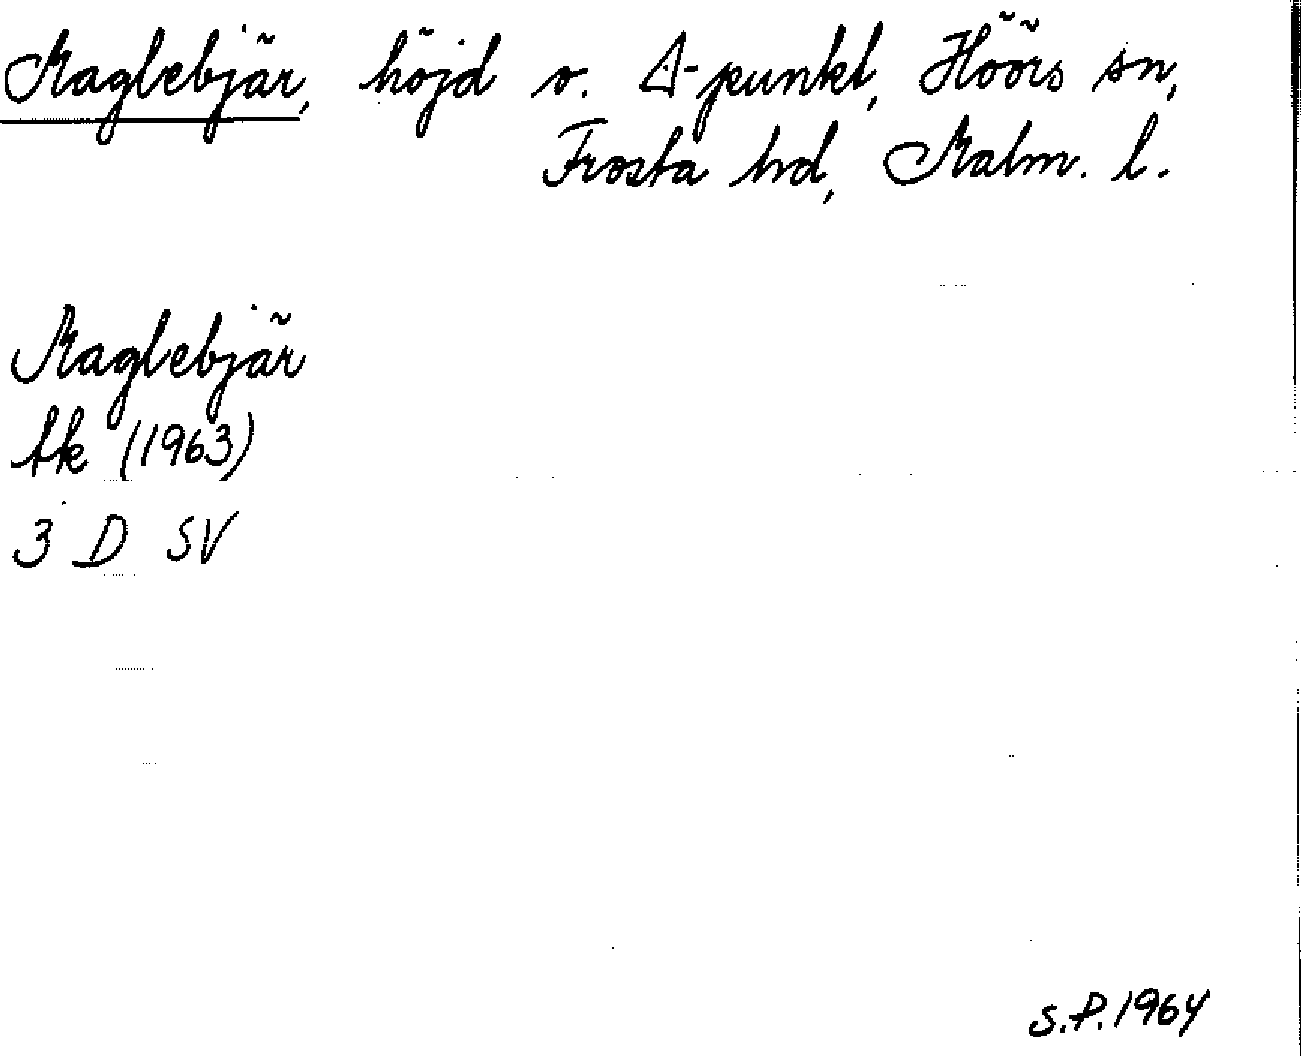 Maglebjär, höjd o. Δ-punkt, Höörs sn,
Frosta hd, Malm. l.
Maglebjär
tk (1963)
3 D SV
S.P. 1964